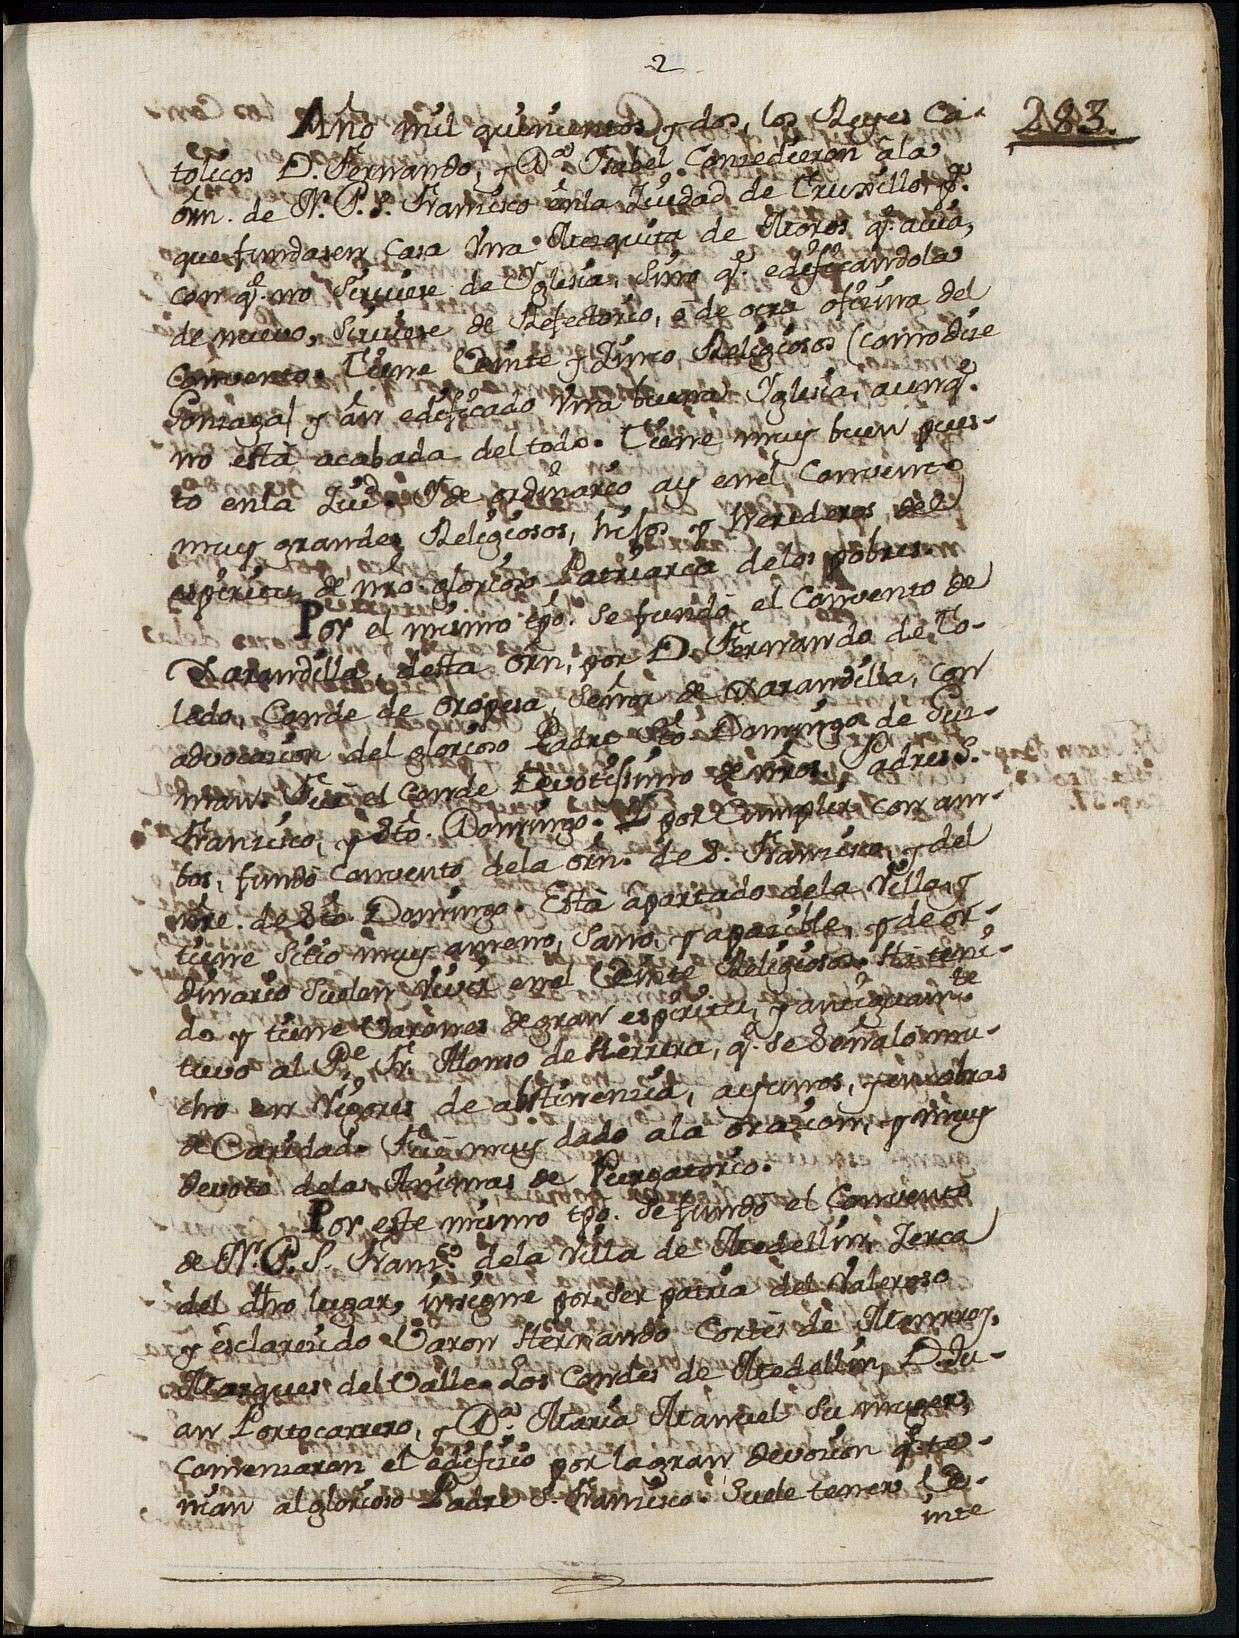 2
283.
Año mil quinientos, y dos, los Reyes Ca-
tolicos D. Fernando, y Dª Isabel Concedieron âla
Orn. de N. P. S. Francisco enla Ziudad de Truxillo, pª.
que fundasen Casa Vna Mezquita de Moros q̃. auia,
con q̃. no Siruiese de Yglesia, Sino q̃. edificandola
de nueuo, Siruiese de Refectorio, o de otra oficina del
Conuento. Tiene Veinte y Zinco Religiosos (como dize
Gonzaga) y an edificado Vna buena Yglesia, aunq̃.
no està acabada del todo. Tiene muy buen pues-
to enla Ziud. Y de ordinario ay enel Conuento
muy grandes Religiosos, hijos y herederos del
espiritu de nro glorioso Patriarca delos pobres.
Por el mismo tpo. Se fundò el Conuento de
Xarandilla, desta Orn, por D. Fernando de To-
ledo, Conde de Oropesa, Señor de Xarandilla, con
aduocacion del glorioso Padre Sto. Domingo de Guz-
man. Fue el Conde Deuotissimo de nros. Padres S.
Francisco, y Sto. Domingo. Y por Cumplir con am-
bos, fundò Conuento dela Orn. de S. Francisco, y del
nre. de Sto. Domingo. Està apartado dela Villa, y
tiene Sitio muy ameno, Sano, y apazible, y de or-
dinario Suelen Viuir enel Veinte Religiosos. Ha teni-
do y tiene Varones de gran espiritu, y antiguamte
tuuo al Pe. Fr. Alonso de Herrera, q̃. se Señalò mu-
cho en rigores de abstinenzia, ayunos, y en obras
de Caridad. Fue muy dado ala oracion, y muy
deuoto delas Animas de Purgatorio.
Por este mismo tpo. Se fundò el Conuento
de N. P. S. Franco. dela Villa de Medellin, Zerca
del dho lugar, insigne por Ser patria del Valeroso
y esclarezido Varon Hernando Cortès de Monrroy,
Marques del Valle. Los Condes de Medellin, D. Ju-
an Portocarrero, y Dª. Maria Manuel Su muger,
Comenzaron el edificio por la gran deuocion q̃. te-
nian al glorioso Padre S. Francisco. Suele tener Ve-
inte